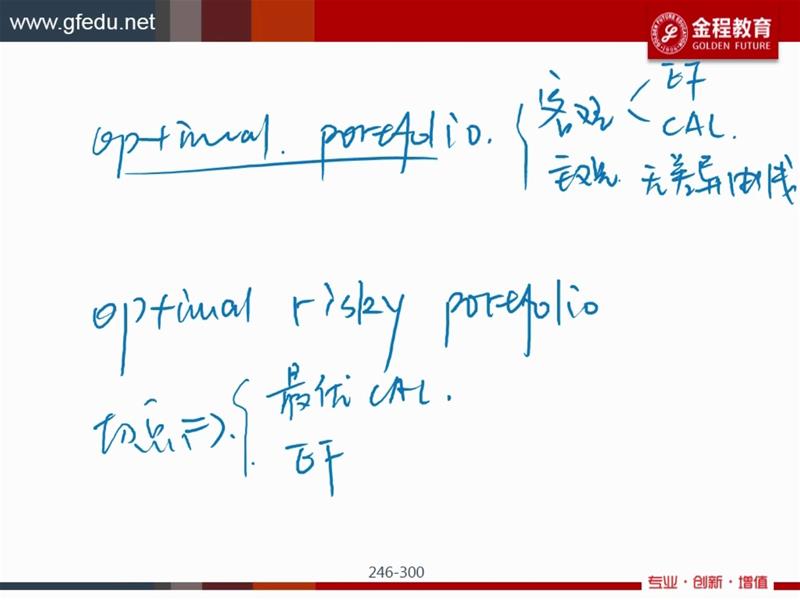 www.gfedu.net
金程教育
GOLDEN FUTURE
optimal. portfolio. { 客观 < EF
CAL.
主观. 无差异曲线
optimal risky portfolio
切点 => { 最优 CAL.
EF
246-300
专业·创新·增值